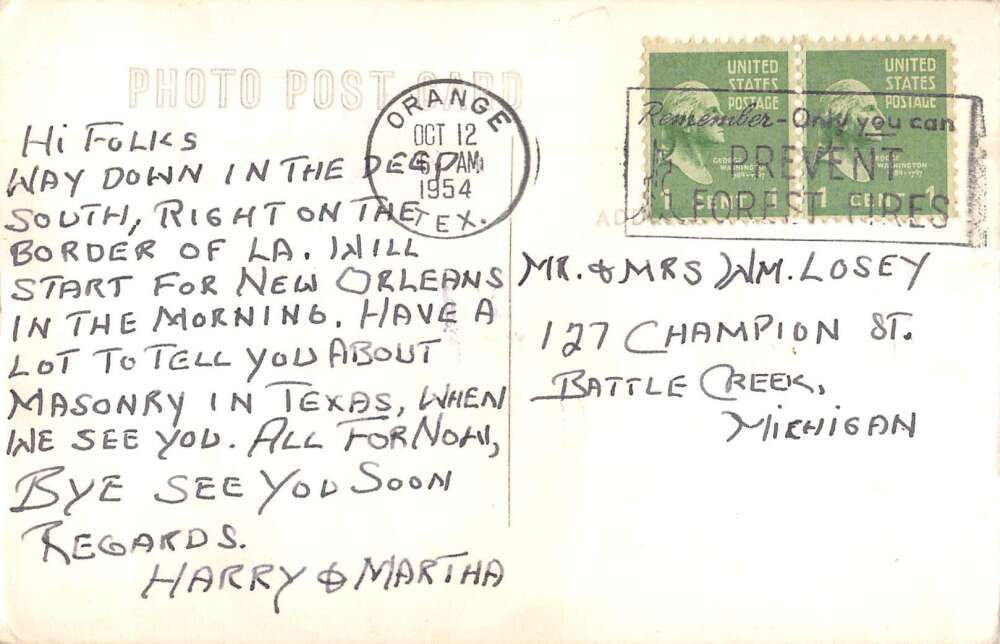 PHOTO POST CARD
ORANGE
OCT 12
AM
1954
TEX.
UNITED STATES POSTAGE
GEORGE WASHINGTON
1789-1797
1 CENT 1
UNITED STATES POSTAGE
GEORGE WASHINGTON
1789-1797
1 CENT 1
Remember - Only you can
PREVENT
FOREST FIRES
Hi FOLKS
WAY DOWN IN THE DEEP
SOUTH, RIGHT ON THE
BORDER OF LA. WILL
START FOR NEW ORLEANS
IN THE MORNING. HAVE A
LOT TO TELL YOU ABOUT
MASONRY IN TEXAS, WHEN
WE SEE YOU. ALL FOR NOW,
BYE SEE YOU SOON
REGARDS.
HARRY & MARTHA
MR. & MRS WM. LOSEY
127 CHAMPION ST.
BATTLE CREEK,
MICHIGAN